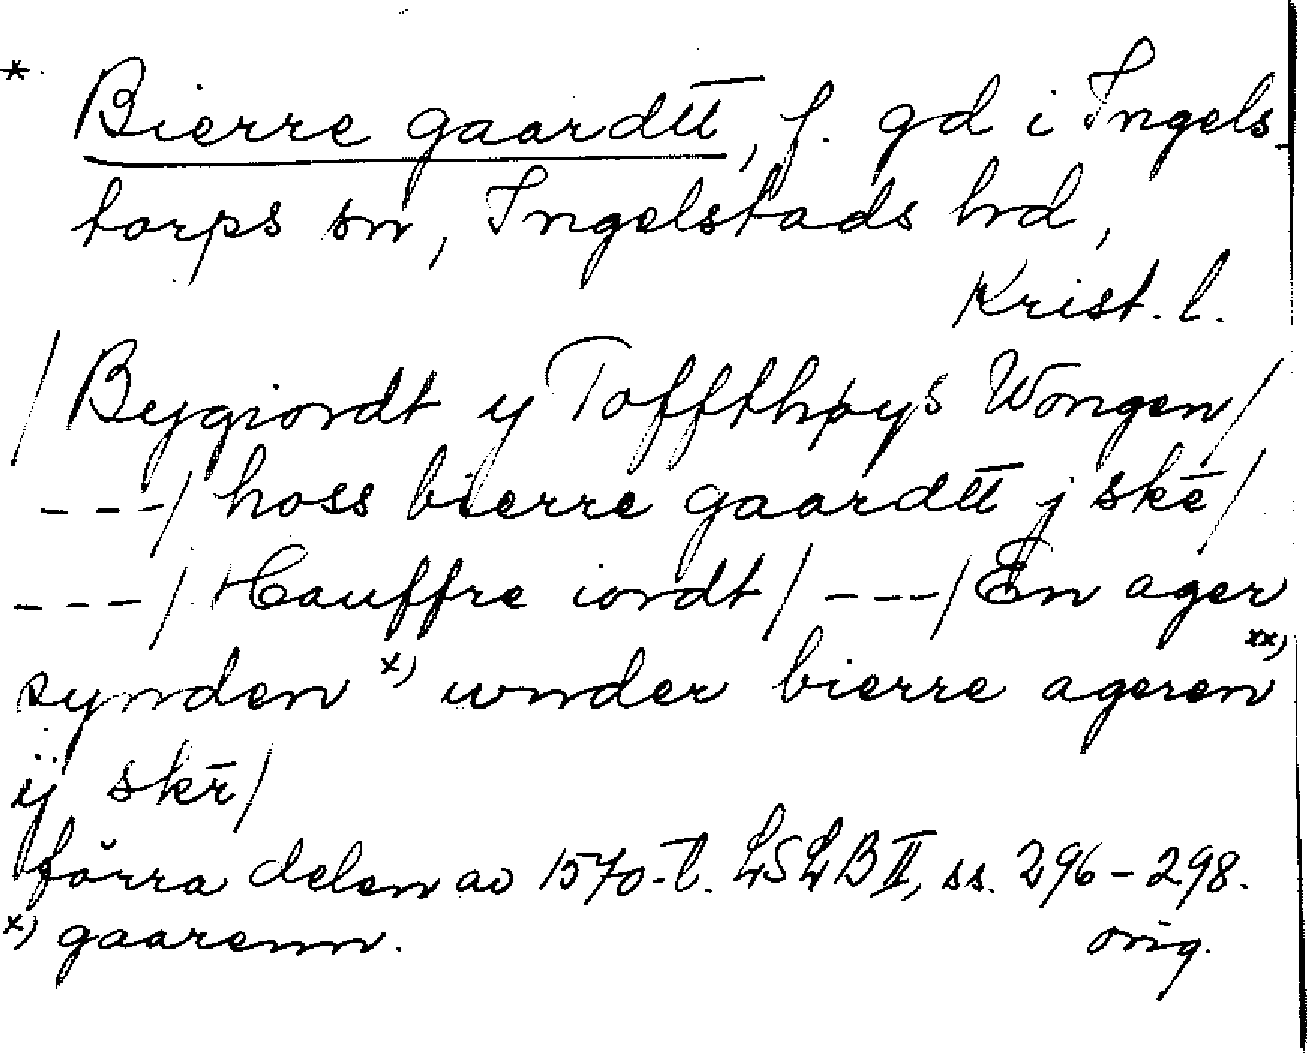 * Bierre gaardtt̄, f. gd i Ingels-
torps sn, Ingelstads hd,
Krist. l.
/ Bygiordt y Toffthøys Wongen/
---/ hoss bierre gaardtt̄ j skē/
---/ Hauffre iordt/ ---/ En ager
synden x) wnder bierre ageren xx)
ÿ skē/
förra delen av 1570-t. LSLB II, ss. 296-298.
x) gaarenn. orig.